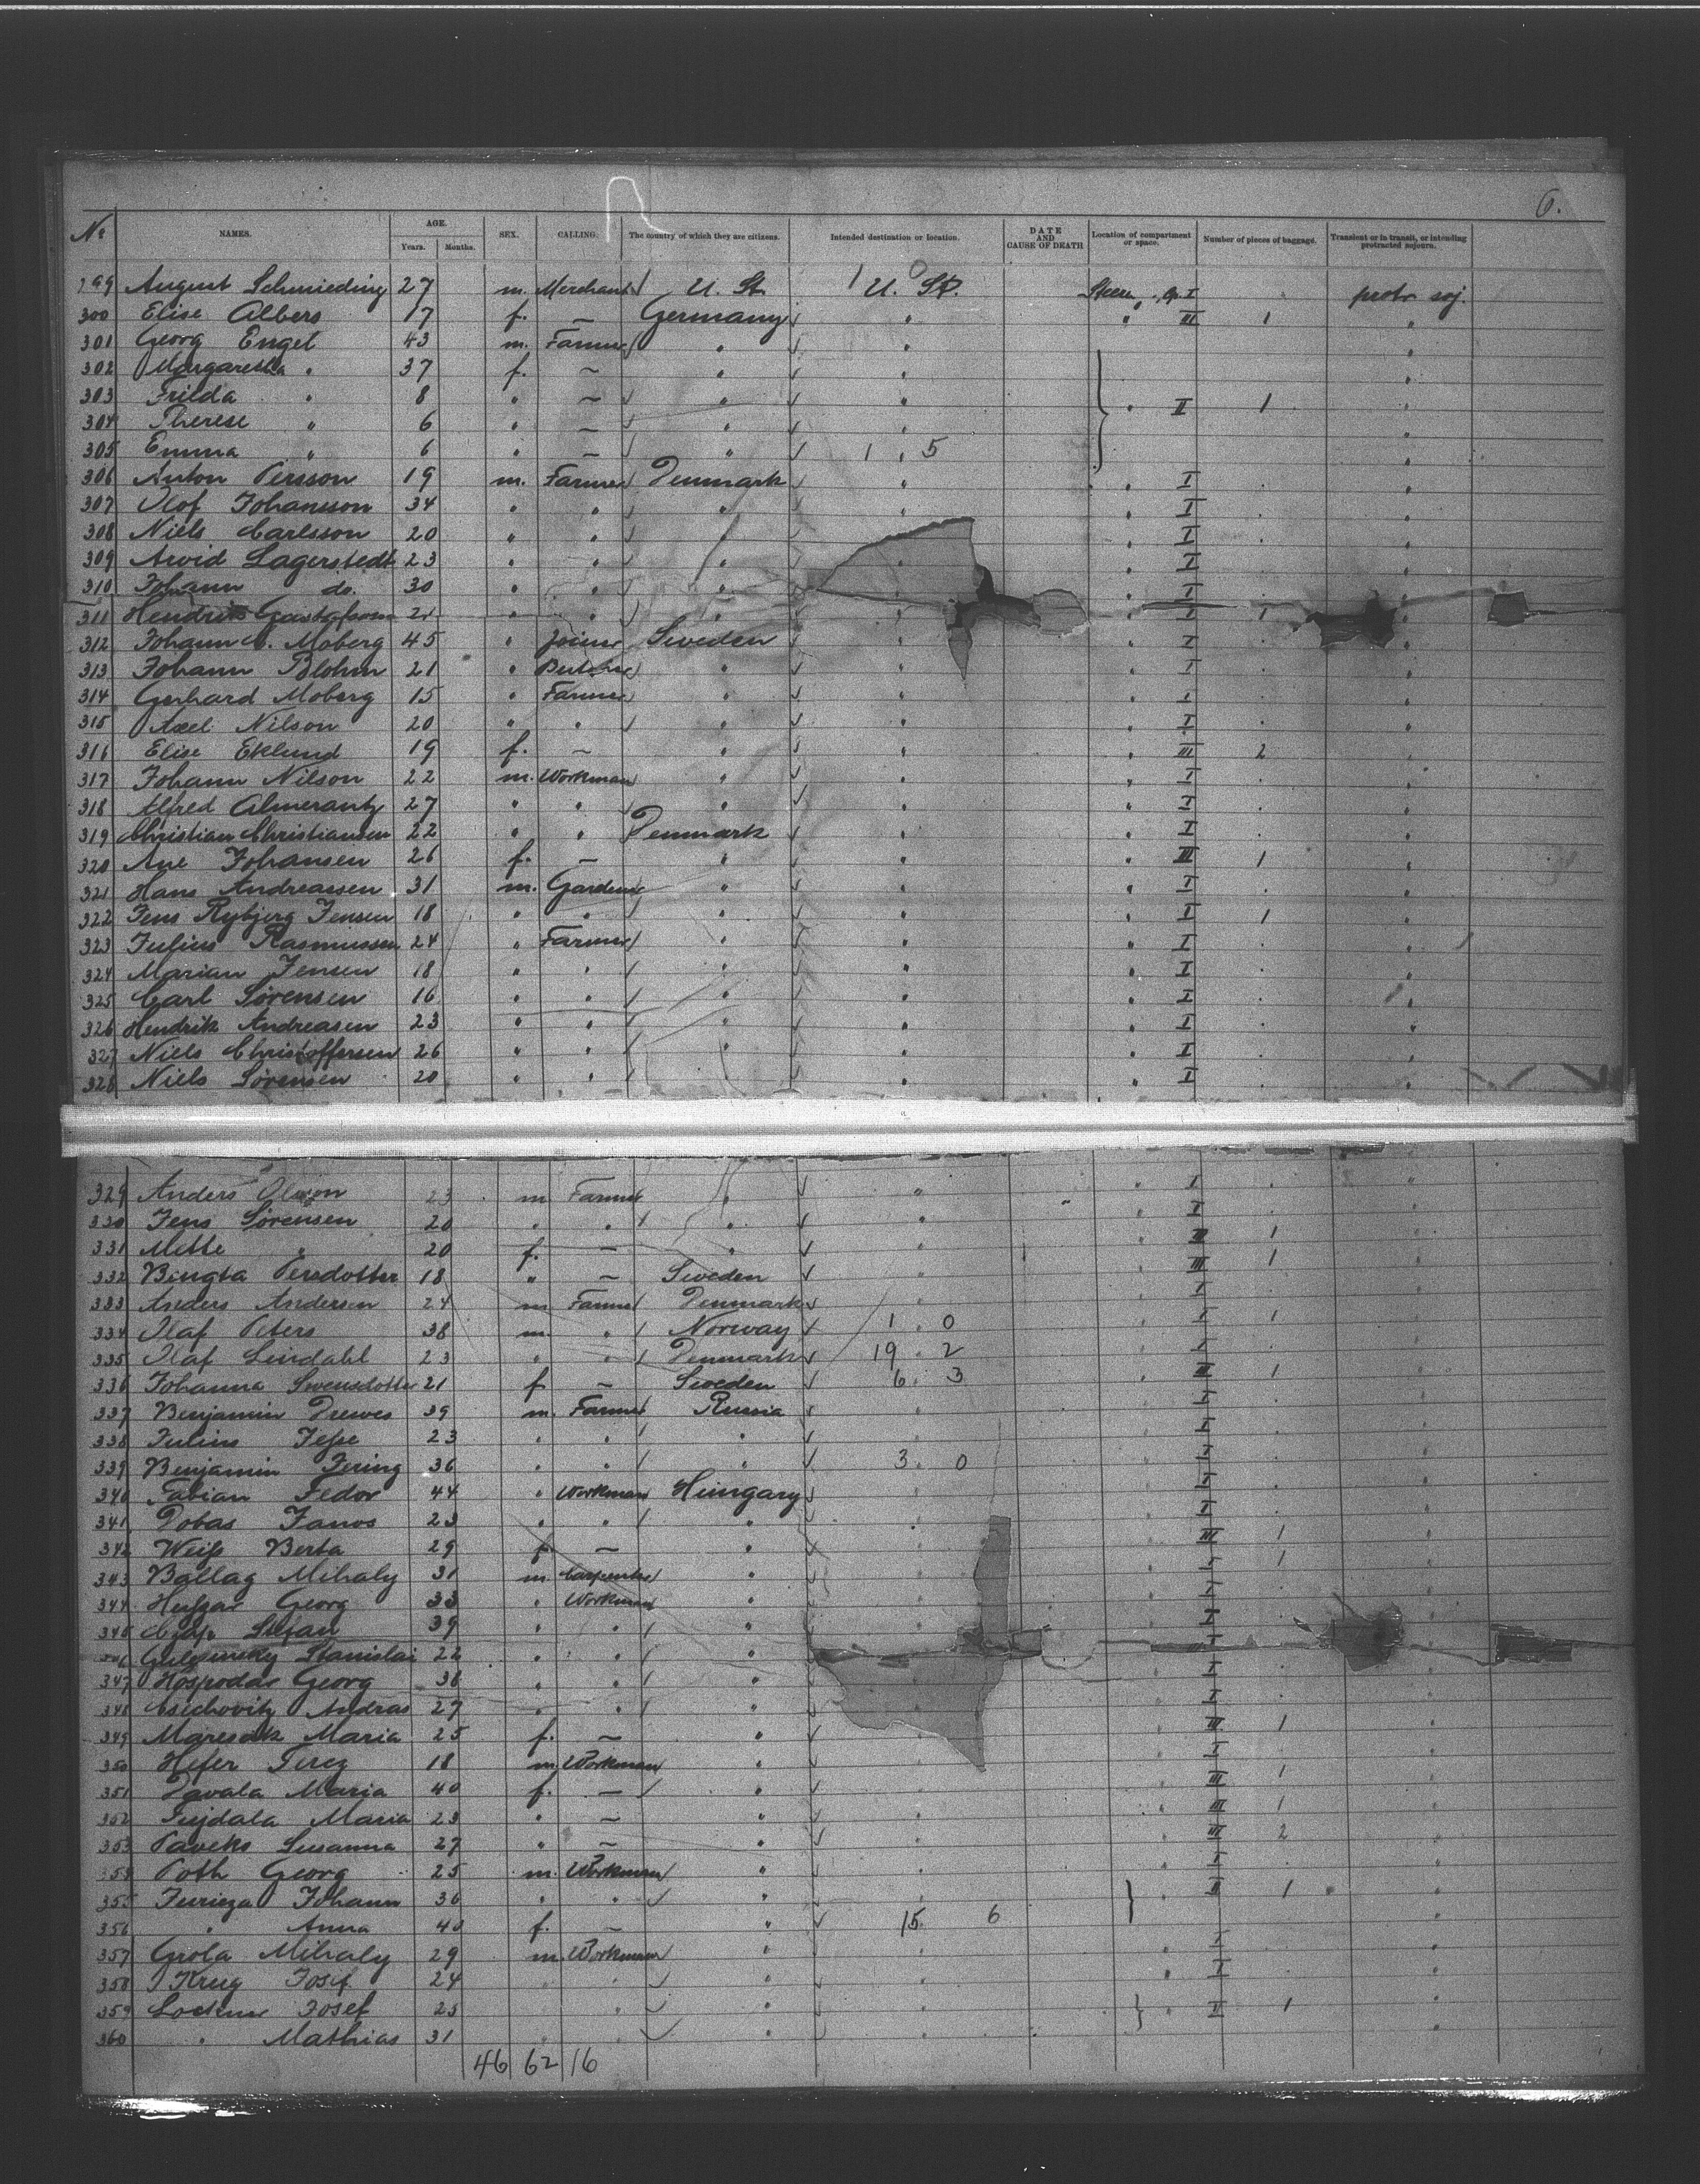 6.
No NAMES. AGE. Years. Months. SEX. CALLING. The country of which they are citizens. Intended destination or location. DATE AND CAUSE OF DEATH Location of compartment or space. Number of pieces of baggage. Transient or in transit, or intending protracted sojourn.
299 August Schmieding 27 m. Merchant U. St. 1 0 U. St. Steer. Cp. I protr soj.
300 Elise Albers 17 f. — Germany " " III 1 "
301 Georg Engel 43 m. Farmer " " "
302 Margaretha " 37 f. — " " "
303 Frilda " 8 " — " " " II 1 "
304 Therese " 6 " — " " "
305 Emma " 6 " — " 1 " 5 "
306 Anton Persson 19 m. Farmer Denmark " " I "
307 Olof Johansson 34 " " " " " I "
308 Niels Carlsson 20 " " " " I "
309 Arvid Lagerstedt 23 " " " " " I "
310 Johann do. 30 " " " " " I "
311 Hendrik Gustafsson 21 " " " " " I 1 "
312 Johann C. Moberg 45 " Joiner Sweden " " I "
313 Johann Blohm 21 " Butcher " " " I "
314 Gerhard Moberg 15 " Farmer " " " I "
315 Axel Nilson 20 " " " " " I "
316 Elise Eklund 19 f. — " " " III 2 "
317 Johann Nilson 22 m. Workman " " " I "
318 Alfred Almerantz 27 " " " " " I "
319 Christian Christiansen 22 " " Denmark " " I "
320 Ane Johansen 26 f. — " " " III 1 "
321 Hans Andreassen 31 m. Gardener " " " I "
322 Jens Rybjerg Jensen 18 " " " " " I 1 "
323 Julius Rasmussen 24 " Farmer " " " I "
324 Marian Jensen 18 " " " " " I "
325 Carl Sørensen 16 " " " " " I "
326 Hendrik Andreasen 23 " " " " " I "
327 Niels Christoffersen 26 " " " " " I "
328 Niels Sørensen 20 " " " " I "
329 Anders Olsson 23 m Farmer " " " I "
330 Jens Sørensen 20 " " " " " I
331 Mette " 20 f. — " " " III 1
332 Bengta Persdotter 18 " — Sweden " " III 1
333 Anders Andersen 24 m Farmer Denmark I
334 Olaf Peters 38 m. " Norway 1 . 0 I 1
335 Olaf Lindahl 23 " " Denmark 19 . 2 I
336 Johanna Swensdotter 21 f — Sweden 6 . 3 III 1
337 Benjamin Drewes 39 m. Farmer Russia " I
338 Julius Jesse 23 " " " " I
339 Benjamin Jering 36 " " " 3 . 0 I
340 Fabian Fedor 44 " Workman Hungary " I
341 Dobas Janos 23 " " " " I
342 Weiss Berta 29 f. — " III 1
343 Ballag Mihaly 31 m. Carpenter " I 1
344 Huszar Georg 33 " Workman " I
345 Stefan 39 " " " I
Stanislai 22 " " "
347 Hospodar Georg 36 " " " I
348 Csechovitz Andras 27 " " " I
349 Maresak Maria 25 f. — " III 1
350 Hefer Terez 18 m Workman " I
351 Pavala Maria 40 f. — " III 1
352 Maria 23 " — " III 1
353 Paveks Susanna 27 " — " III 2
354 Poth Georg 25 m. Workman " I
355 Juricza Johann 36 " " " II 1
356 " Anna 40 f. — " 15 6
357 Grola Mihaly 29 m. Workman " I
358 Krug Josef 24 " " " I
359 Josef 25 " " II 1
360 " Mathias 31 " "
46 62 16